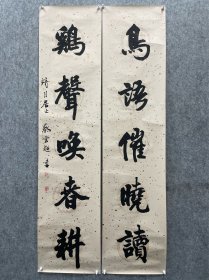 鳥語催曉讀
鷄聲喚春耕